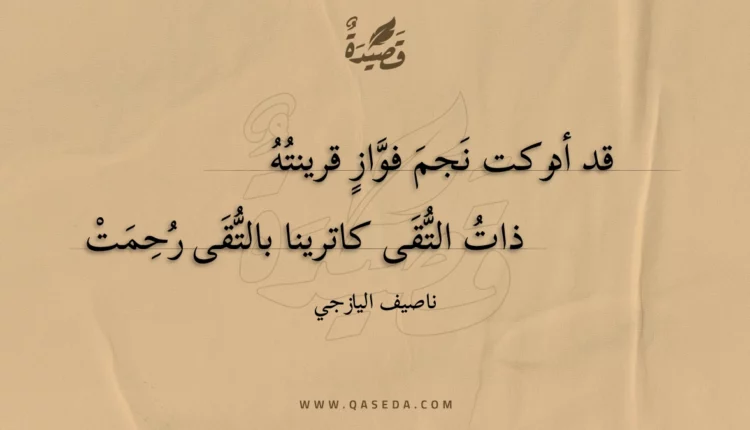 قَصِيْدَةٌ
قد أدركت نَجمَ فوَّازٍ قرينتُهُ
ذاتُ التُّقَى كاترينا بالتُّقَى رُحِمَتْ
ناصيف اليازجي
WWW.QASEDA.COM